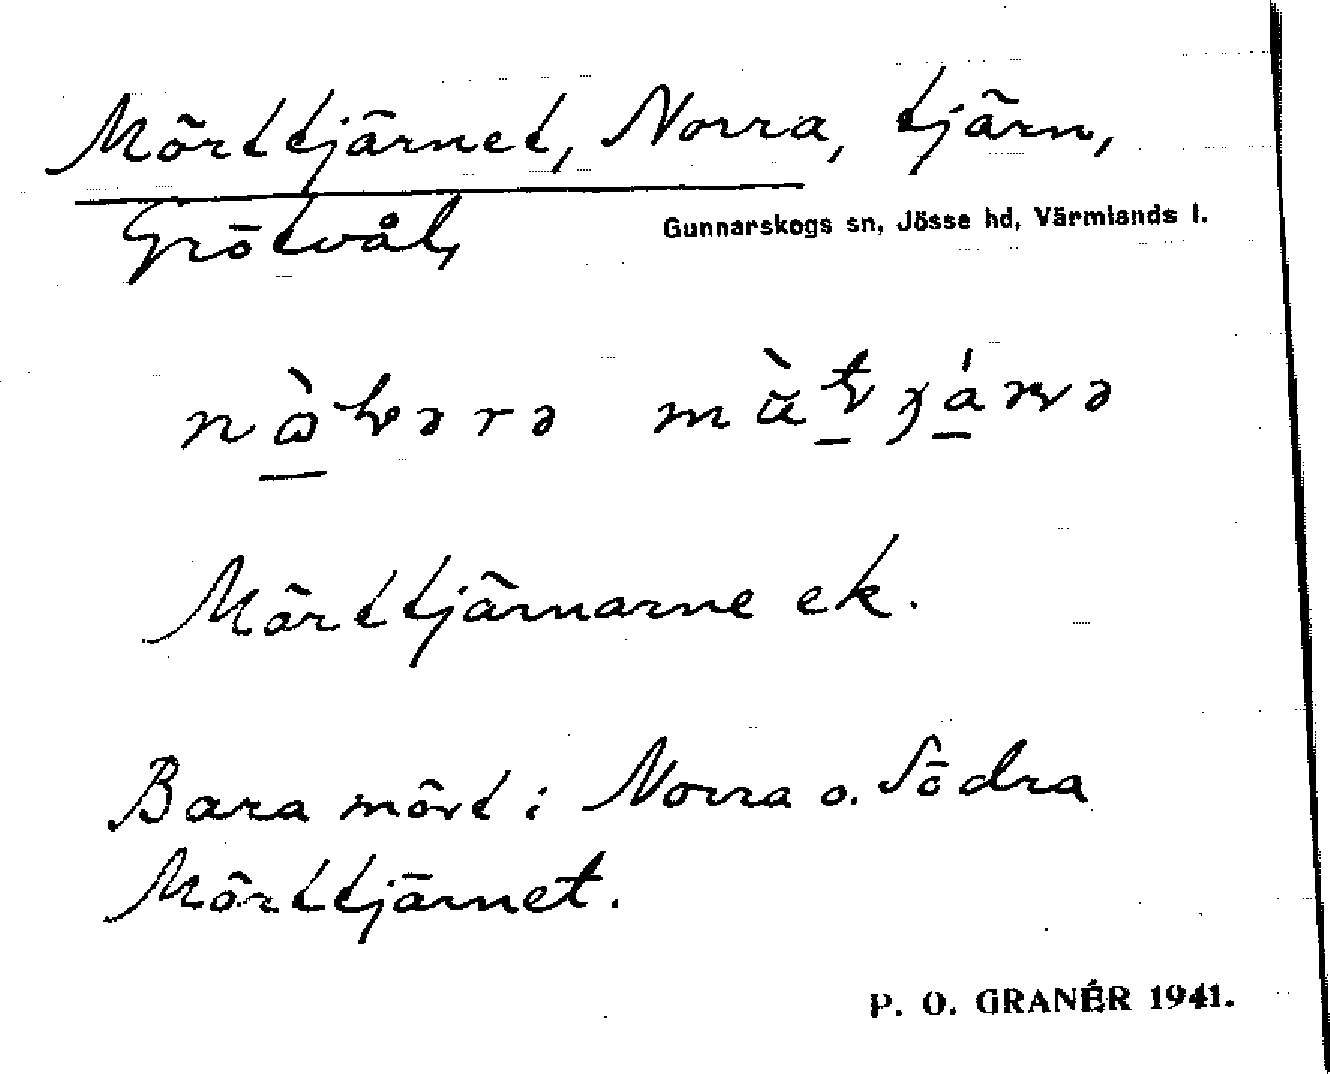 Mörttjärnet, Norra, tjärn,
Grötvål,
Gunnarskogs sn, Jösse hd, Värmlands l.
Mörttjärnarne ek.
Bara mört i Norra o. Södra
Mörttjärnet.
P. O. GRANÉR 1941.